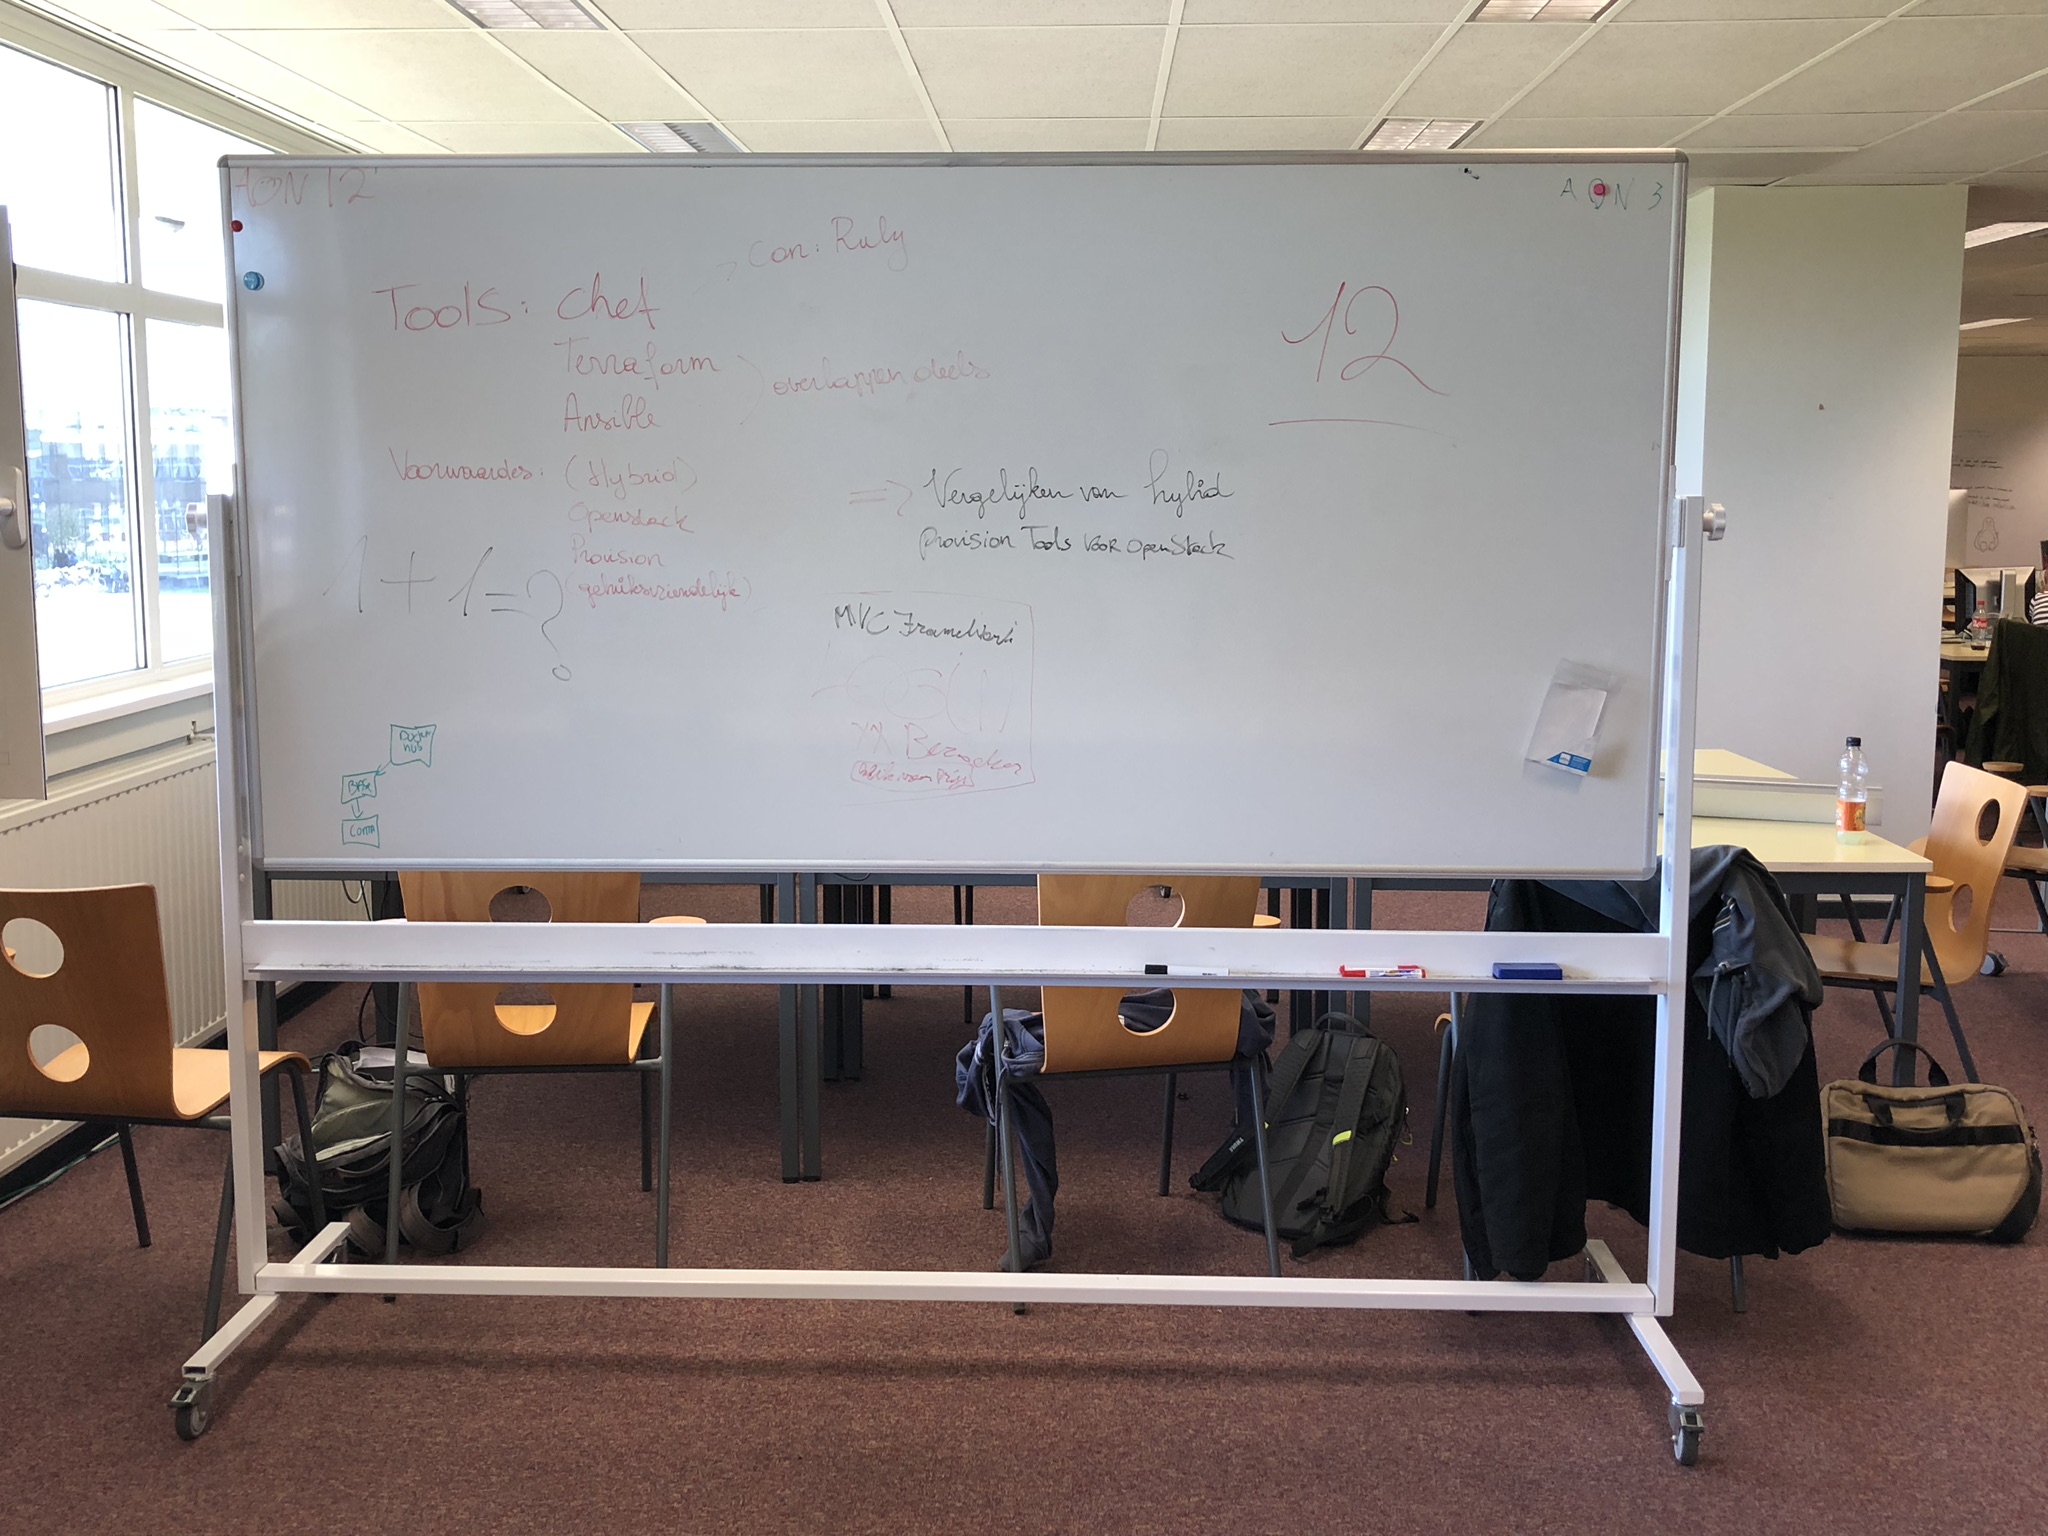 AON 12
AON 3
con: Ruby
Tools: Chef
Terraform
Ansible
overlappen deels
12
Voorwaardes: (Hybrid)
Openstack
Provision
(gebruiksvriendelijk)
=> Vergelijken van hybrid
provision Tools voor openStack
1+1=?
MVC Framework
XX
BASE